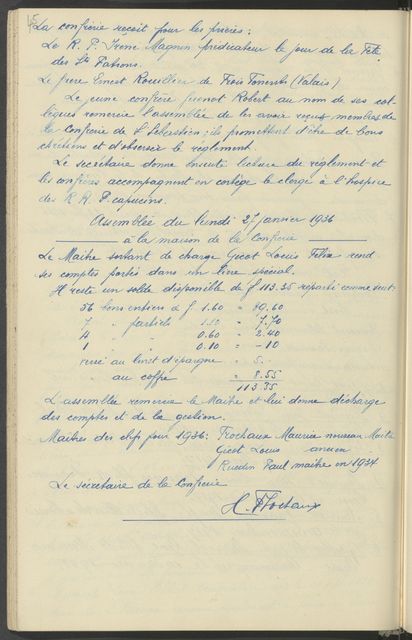 45
La confrérie reçoit pour les prières:
Le R. P. Irené Magnin prédicateur le jour de la Fête
des Sts Patrons.
Le frère Ernest Rouiller de Trois Torrents (Valais)
Le jeune confrère Guenot Robert au nom de ses col-
lègues remercie l'assemblée de les avoir reçus membres de
la Confrérie de St Sébastien; ils promettent d'être de bons
chrétiens et d'observer le règlement.
Le secrétaire donne ensuite lecture du règlement et
les confrères accompagnent en cortège le clergé à l'hospice
des R. R. P. capucins.
Assemblée du lundi 27 janvier 1936
à la maison de la Confrérie
Le Maître sortant de charge Gicot Louis Félix rend
ses comptes portés dans un livre spécial.
Il reste un solde disponible de f 113.35 réparti comme suit.
56 bons entiers à f 1.60 = 89.60
7 " partiels 1.10 = 7.70
4 " " 0.60 = 2.40
1 " " 0.10 = -10
versé au livret d'épargne " 5.-
au coffre " 8.55
113.35
L'assemblée remercie le Maître et lui donne décharge
des comptes et de la gestion.
Maîtres des clefs pour 1936: Frochaux Maurice nouveau Maître
Gicot Louis ancien
Ruedin Paul maître en 1934
Le secrétaire de la Confrérie
H. Frochaux